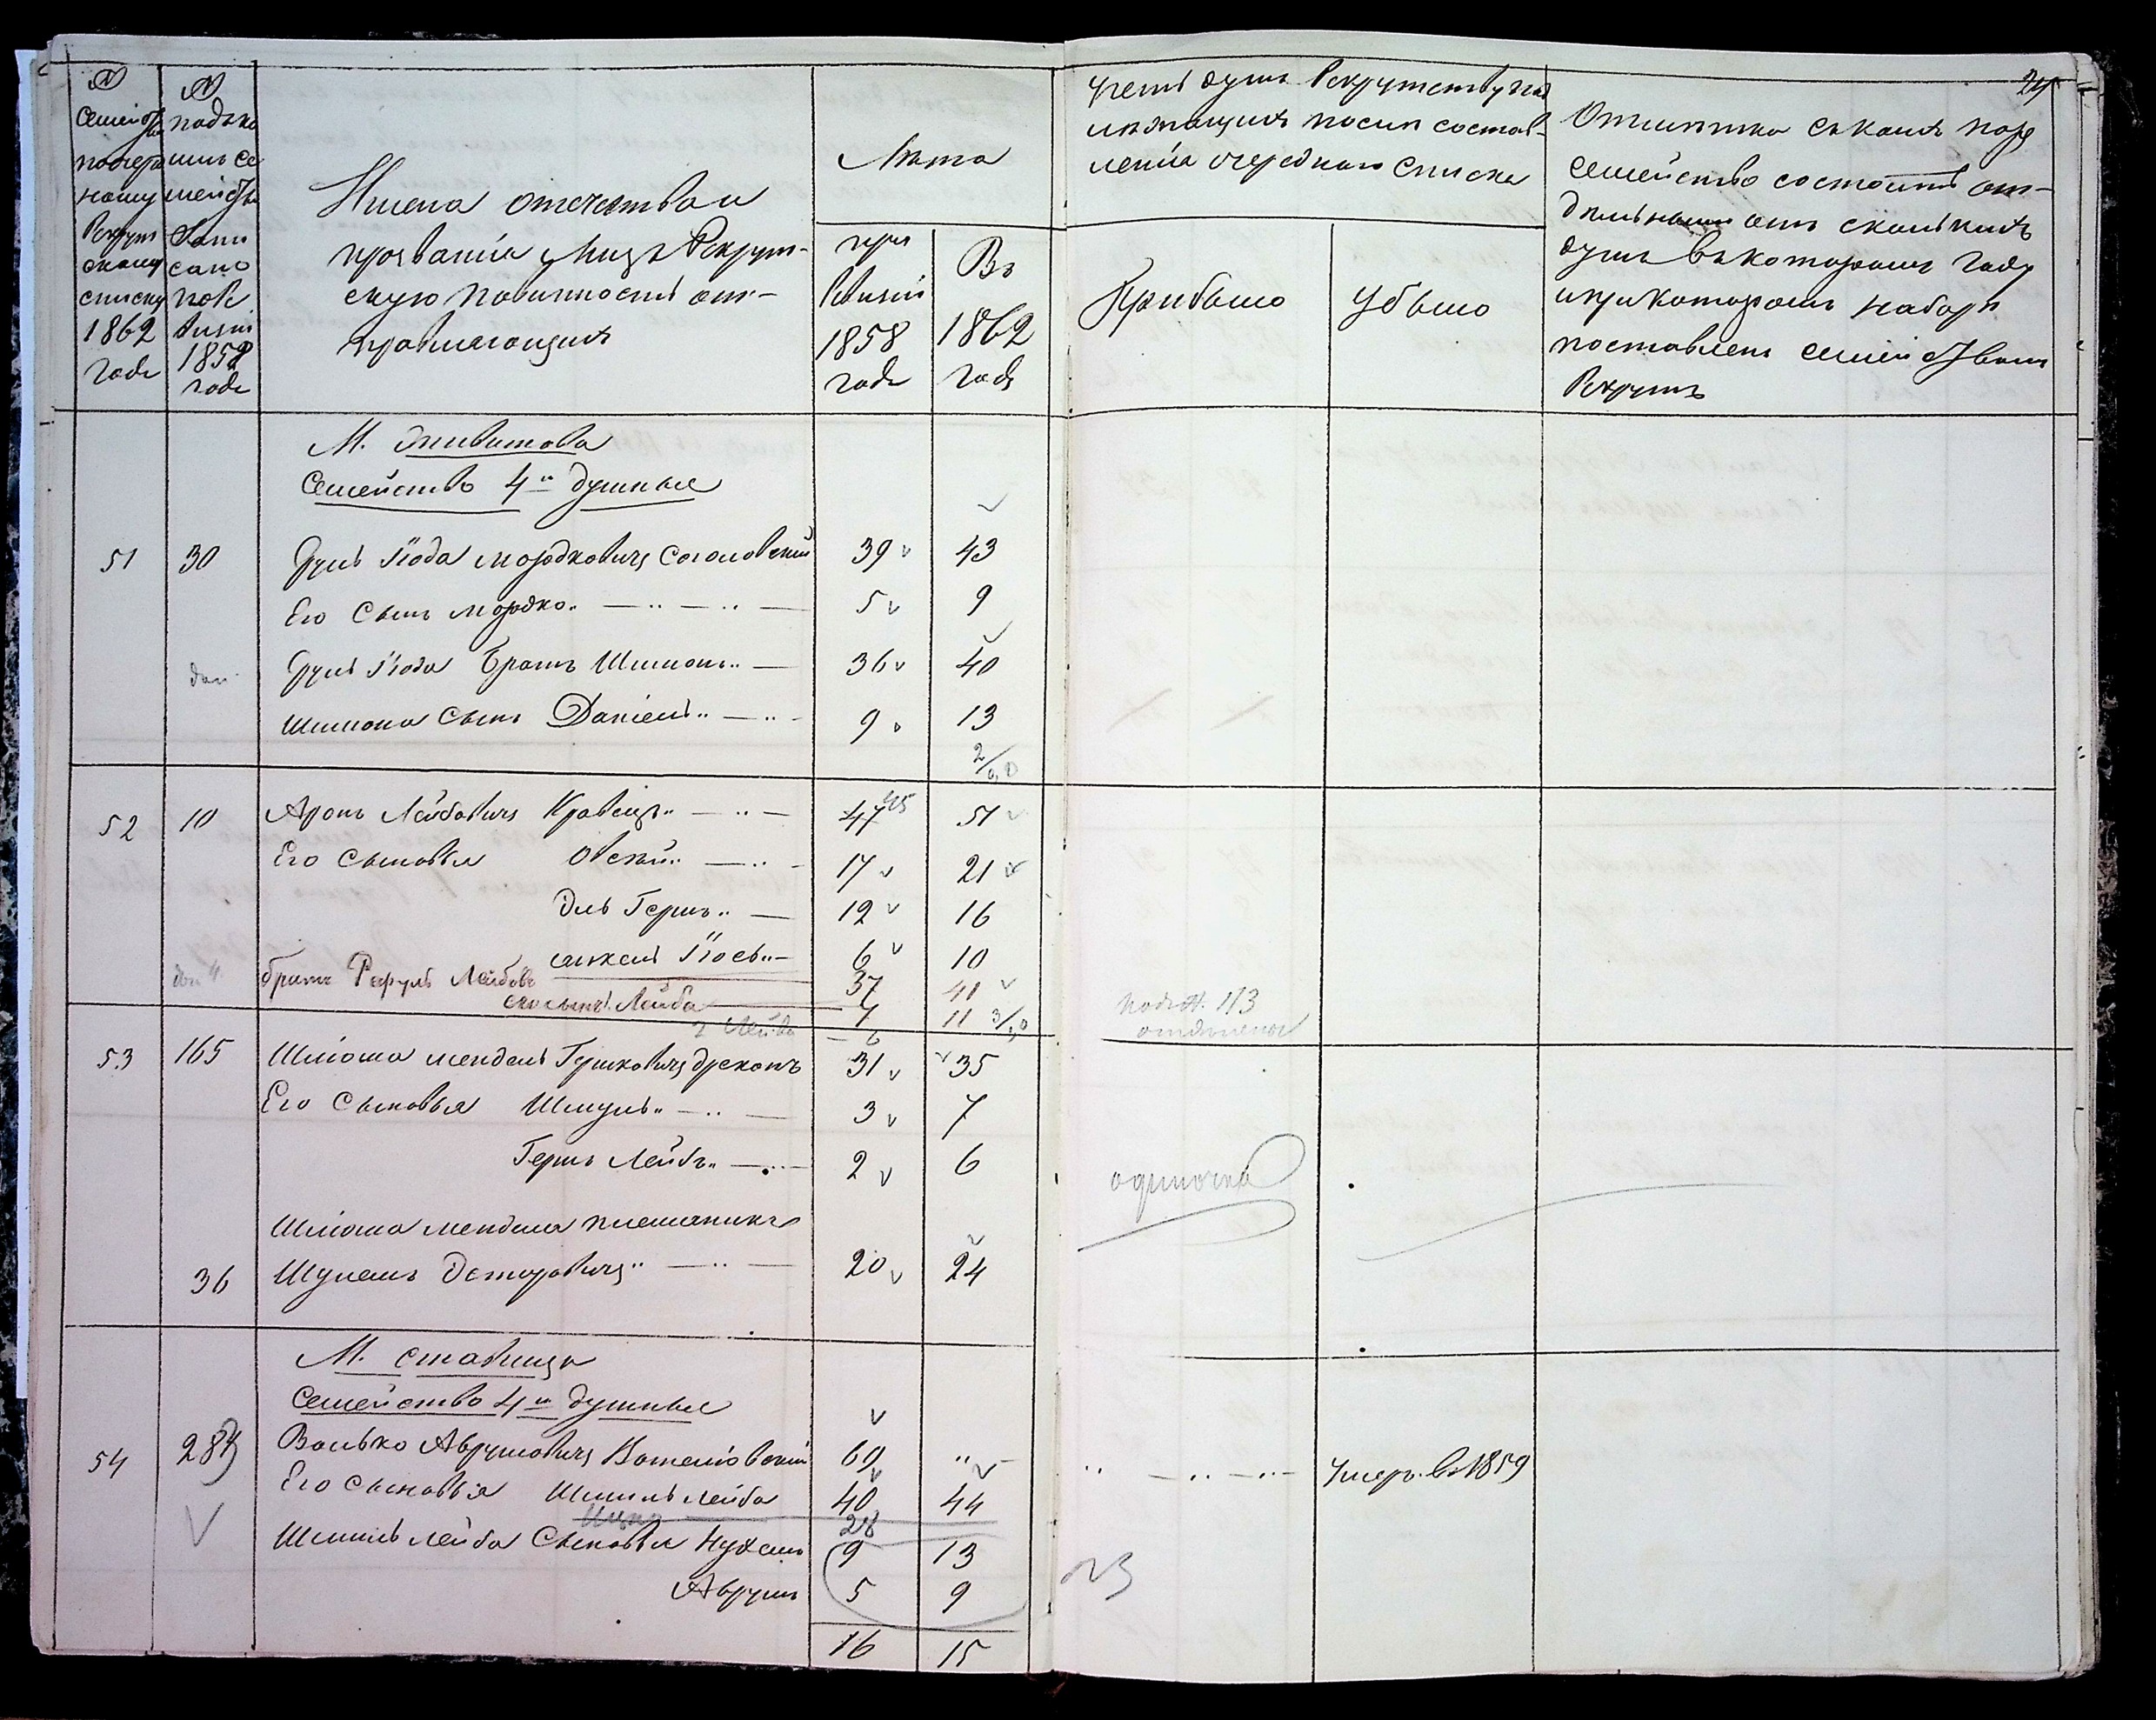 № Семейства по очередному Рекрутскому списку 1862 года
№ подъ коимъ Семейство записано по Ревизіи 1858 года
Имена отечества и
прозванія лицъ Рекрут-
скую повинность от-
правляющихъ
Лѣта
при Ревизіи 1858 года
Въ 1862 годѣ
Число душъ Рекрутству под
лежащихъ послѣ состав-
ленія очереднаго списка
Прибыло
Убыло
24
Отмѣтка съ какихъ поръ
семейство состоитъ от-
дѣльнымъ отъ сколькихъ
душъ въ которомъ году
и при которомъ наборѣ
поставленъ семействомъ
Рекрутъ
М. Животова
Семейство 4хъ душные
51 30 Сруль Іода Мордковичъ Соколовскій 39 43
Его Сынъ Мордко 5 9
Сруль Іода братъ Шимонъ 36 40
Шимона Сынъ Daniель 9 13
52 10 Аронъ Лейбовичъ Кравецъ 47 45 51
Его Сыновья Овсей 17 21
Эль Гершъ 12 16
Іось 6 10
братъ Рафуль Лейбовъ 37 41
Лейба 7 11
2 Лейба 6
подъ №. 113
отдѣлена
53 165 Шліома Мендель Гершковичъ Драконъ 31 35
Его Сыновья Шмуль 3 7
Гершъ Лейбъ 2 6
одиночка
Шліома Менделя племянникъ
36 Шулемъ Осторовичъ 20 24
М. Ставища
Семейство 4хъ душные
54 283 Волько Аврумовичъ 69
Умеръ въ 1859
Его Сыновья Шмиль Лейба 40 44
Ицко 28
Шмиль Лейба Сыновья Нухемъ 9 13
Аврумъ 5 9
16 15